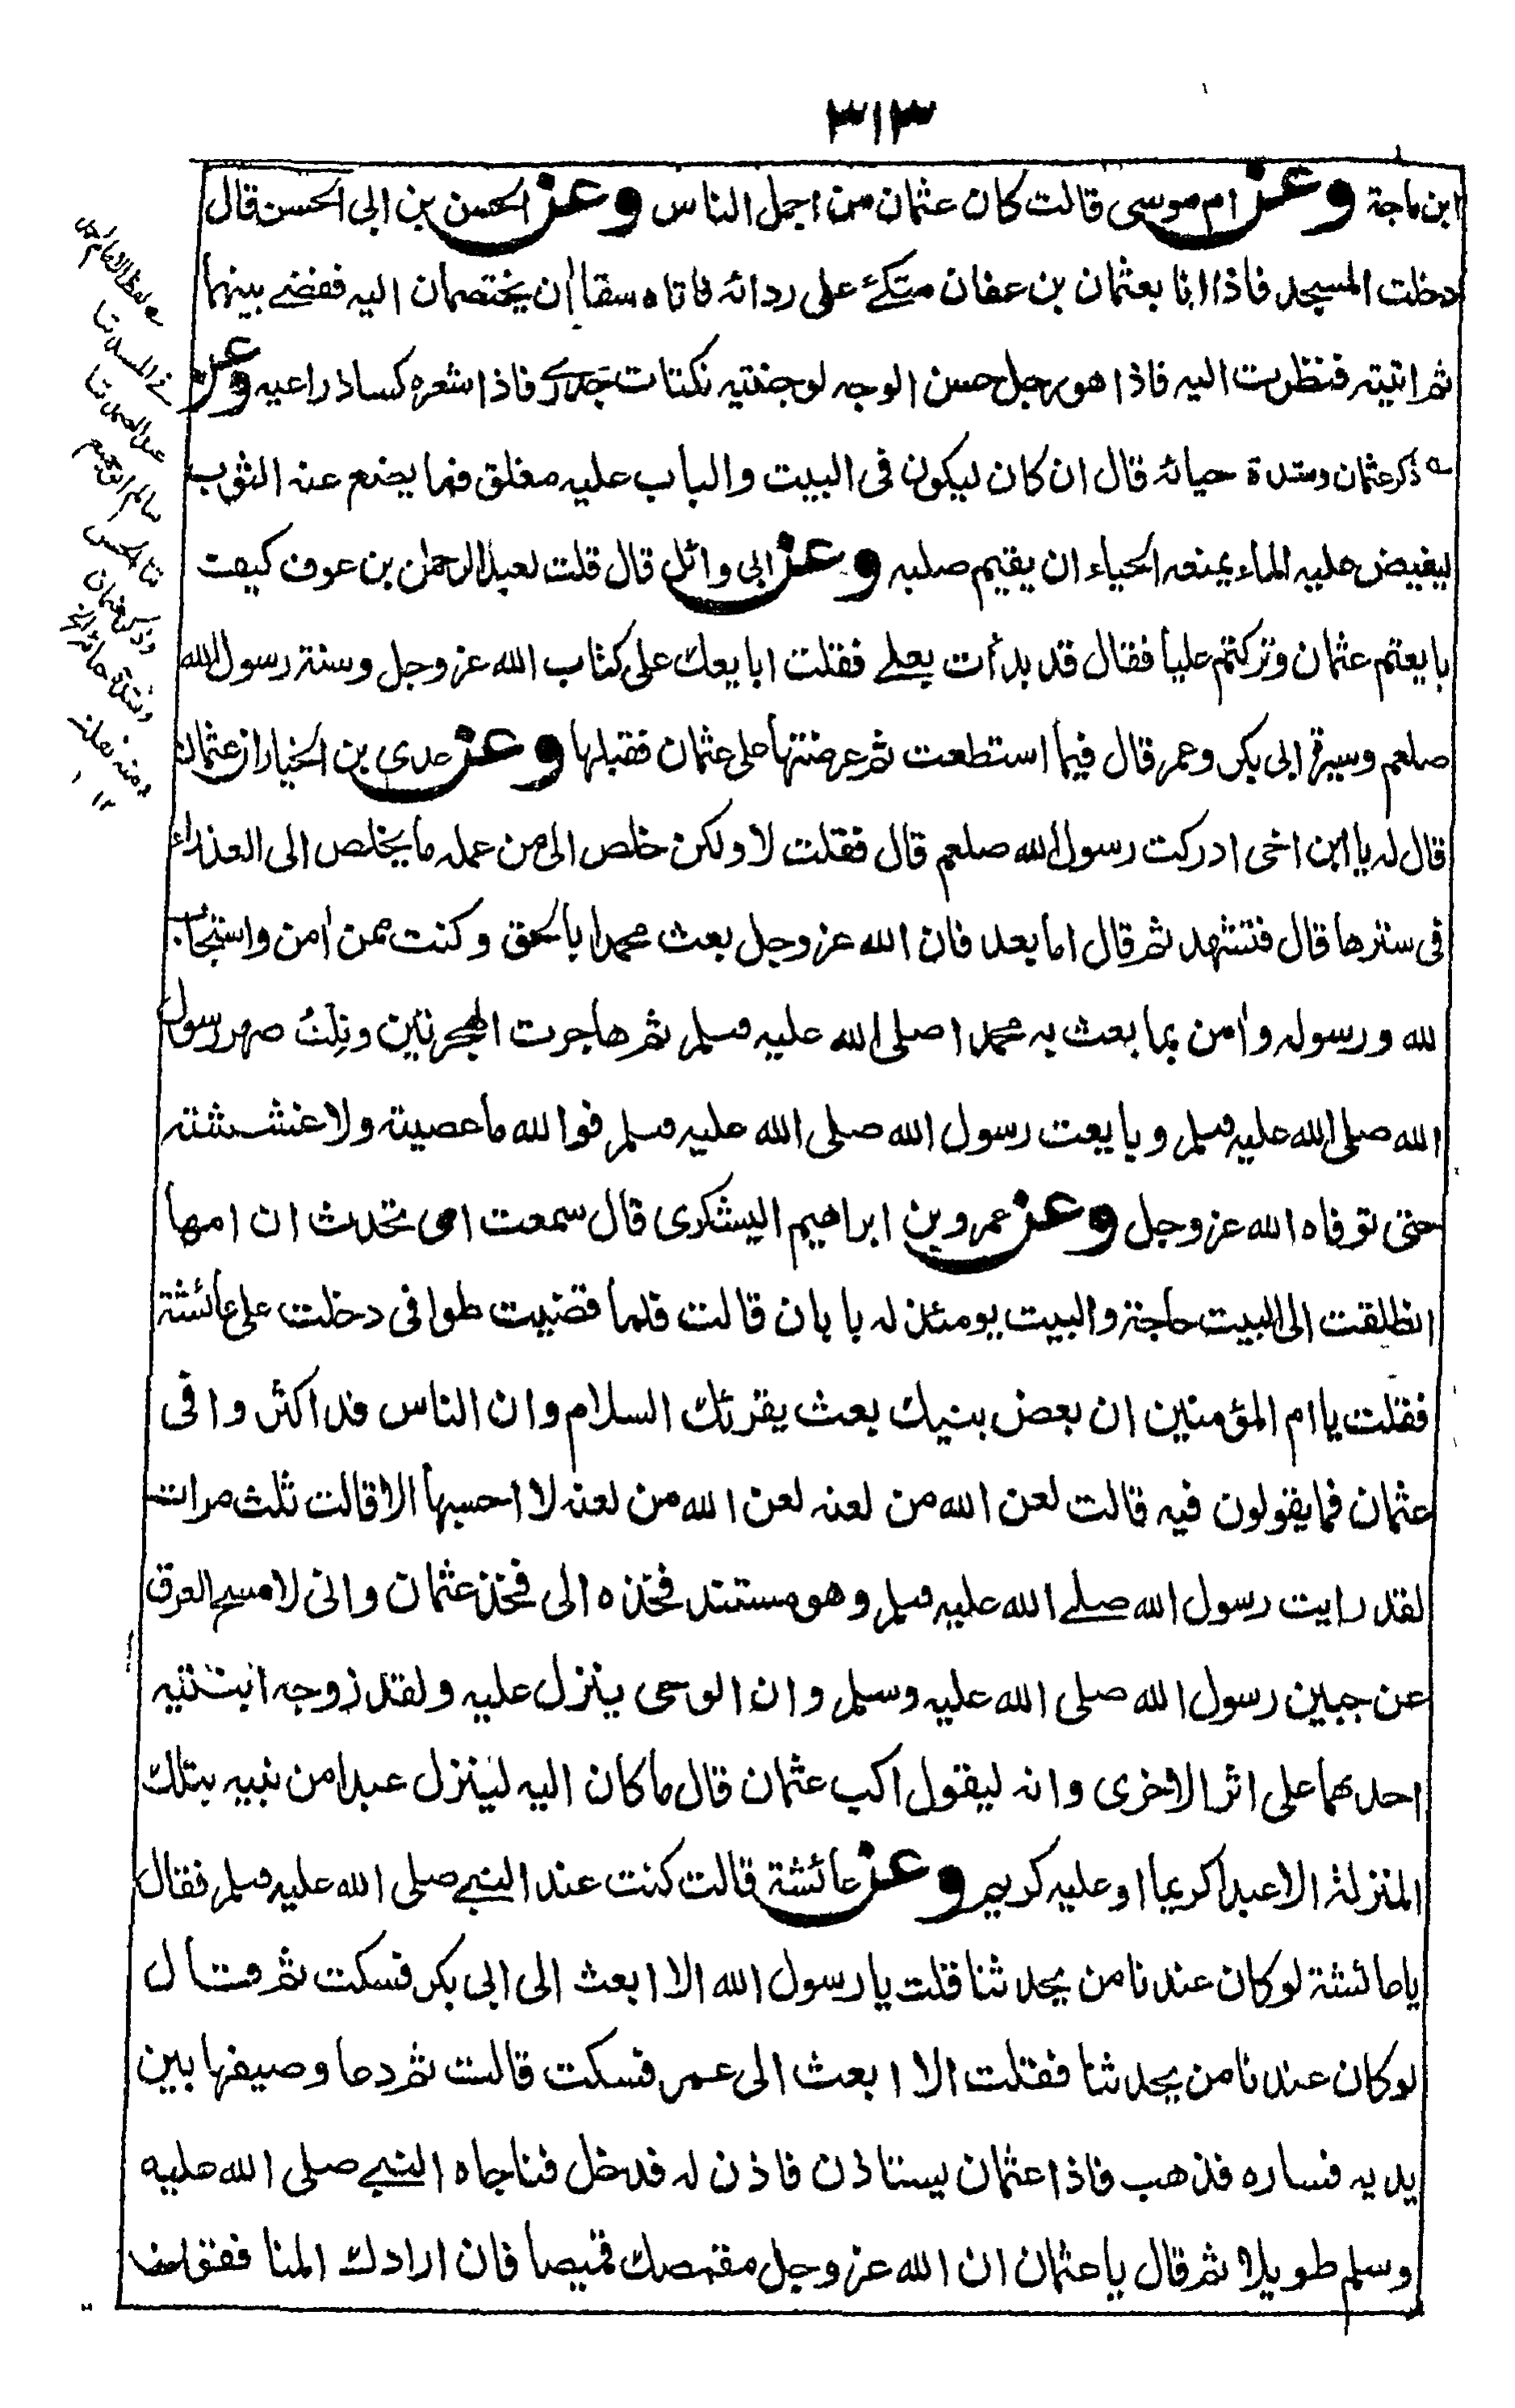 ٣١٣
ابن ماجة وعن ام موسى قالت كان عثمان من اجمل الناس وعن الحسن بن ابى الحسن قال
دخلت المسجد فاذا انا بعثمان بن عفان متكئ على ردائه فاتاه سقاان يختصمان اليه فقضے بينهما
ثم اتيته فنظرت اليه فاذا هو رجل حسن الوجه لوجنتيه نكتات جدرى فاذا شعره كسا ذراعيه وعن
ذكر عثمان وشدة حيائه قال ان كان ليكون فى البيت والباب عليه مغلق فما يضع عنه الثوب
ليفيض عليه الماء يمنعه الحياء ان يقيم صلبه وعن ابى وائل قال قلت لعبد الرحمٰن بن عوف كيف
بايعتم عثمان وتركتم عليا فقال قد بدأت بعلے فقلت ابايعك على كتاب الله عز وجل وسنة رسول الله
صلعم وسيرة ابى بكر وعمر قال فيما استطعت ثم عرضتها على عثمان فقبلها وعن عدى بن الخيار ان عثمان
قال له يا ابن اخى ادركت رسول الله صلعم قال فقلت لا ولكن خلص الى من عمله ما يخلص الى العذراء
فى سترها قال فتشهد ثم قال اما بعد فان الله عز وجل بعث محمدا بالحق وكنت ممن اٰمن واستجاب
لله ورسوله واٰمن بما بعث به محمدا صلى الله عليه وسلم ثم هاجرت الهجرتين ونِلتُ صهر رسول
الله صلى الله عليه وسلم وبايعت رسول الله صلى الله عليه وسلم فوالله ما عصيته ولا غششته
حتى توفاه الله عز وجل وعن عمرو بن ابراهيم اليشكرى قال سمعت امى تحدث ان امها
انطلقت الى البيت حاجة والبيت يومئذ له بابان قالت فلما قضيت طوافى دخلت على عائشة
فقلت يا ام المؤمنين ان بعض بنيك بعث يقرئك السلام وان الناس قد اكثروا فى
عثمان فما يقولون فيه قالت لعن الله من لعنه لعن الله من لعنه لا احسبها الا قالت ثلث مرات
لقد رايت رسول الله صلے الله عليه وسلم وهو مستند فخذه الى فخذ عثمان وانى لامسح العرق
عن جبين رسول الله صلى الله عليه وسلم وان الوحى ينزل عليه ولقد زوجه ابنتيه
احدبهما على اثر الاخرى وانه ليقول اكب عثمان قال ما كان اليه لينزل عبدا من نبيه بتلك
المنزلة الا عبدا كريما او عليه كريم وعن عائشة قالت كنت عند النبے صلى الله عليه وسلم فقال
يا عائشة لو كان عندنا من يحدثنا قلت يا رسول الله الا ابعث الى ابى بكر فسكت ثم قال
لو كان عندنا من يحدثنا فقلت الا ابعث الى عمر فسكت قالت ثم دعا وصيفها بين
يديه فساره فذهب فاذا عثمان يستاذن فاذن له فدخل فناجاه النبے صلى الله عليه
وسلم طويلا ثم قال يا عثمان ان الله عز وجل مقمصك قميصا فان ارادك المنافقون